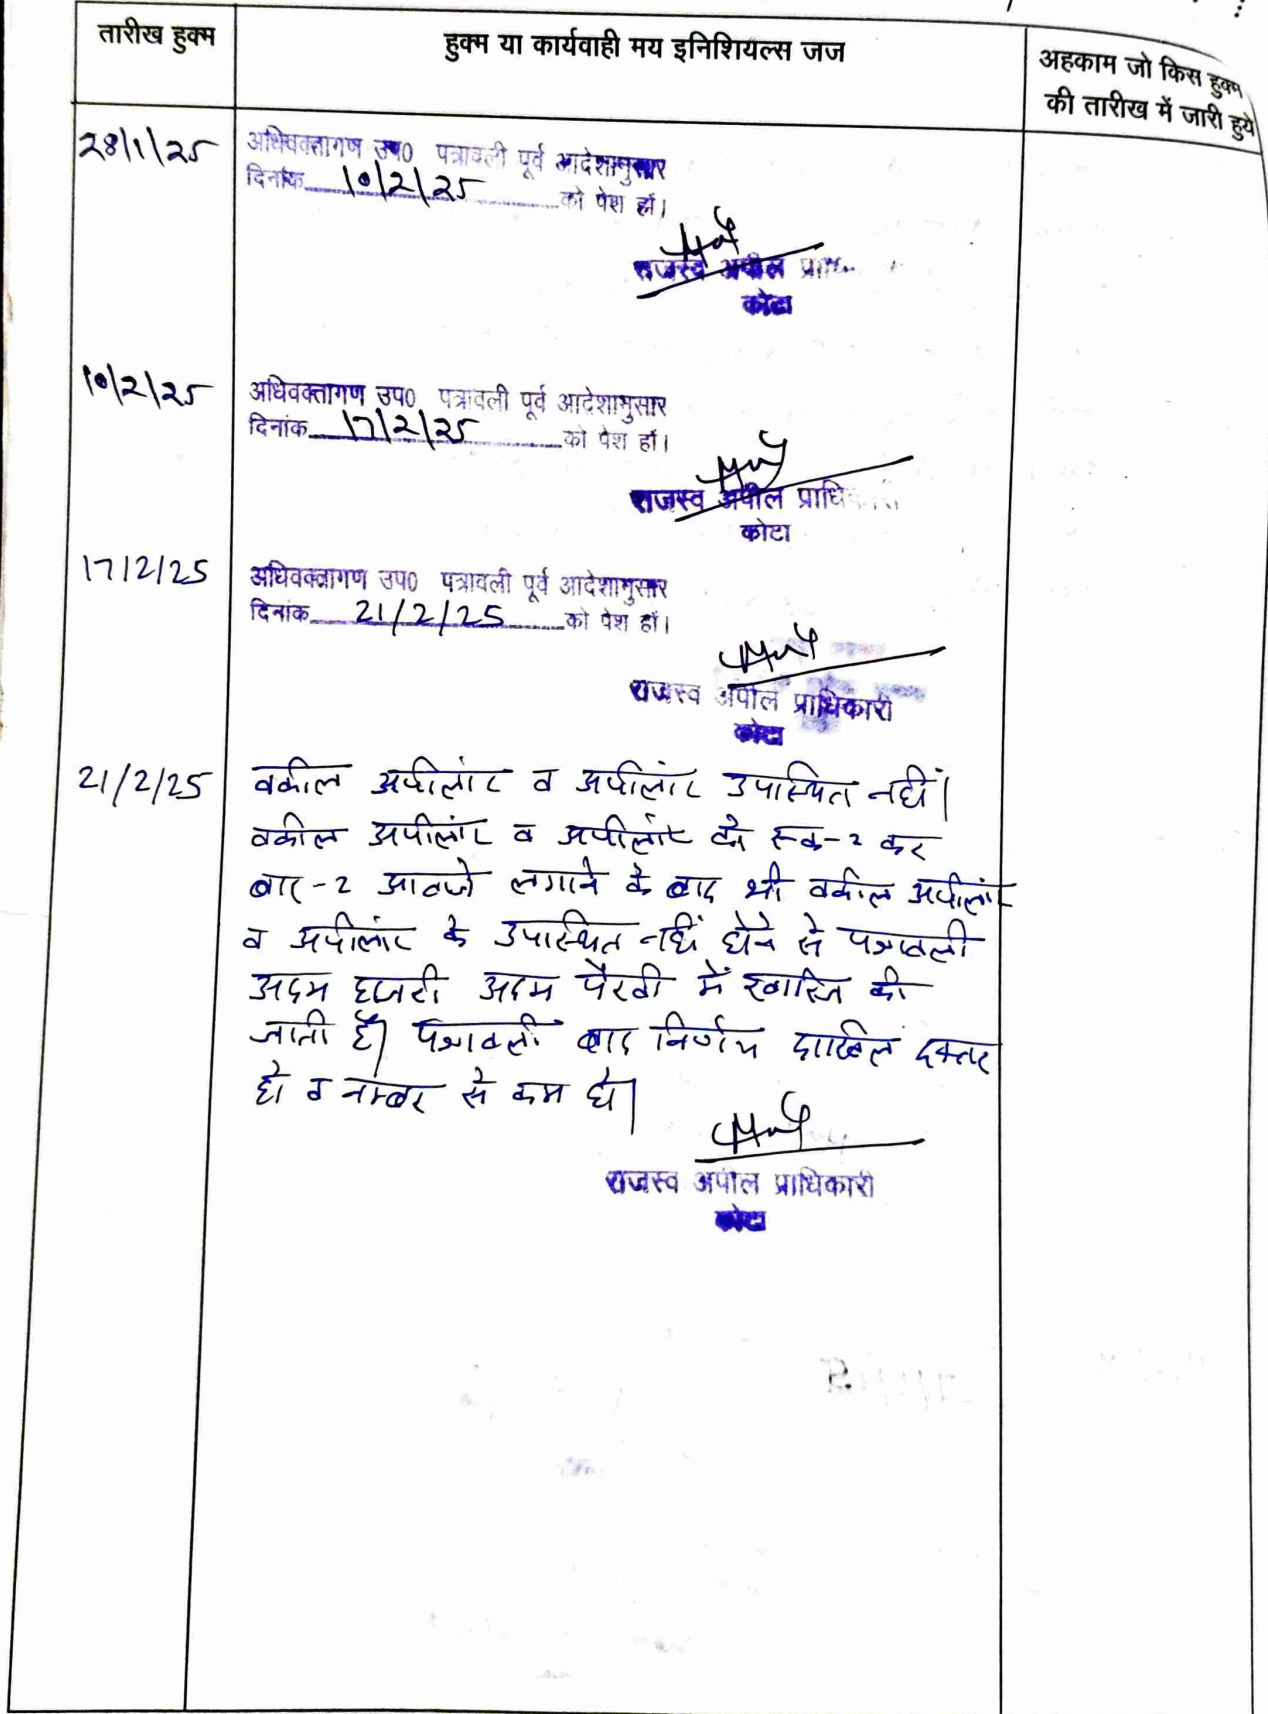 तारीख हुक्म
हुक्म या कार्यवाही मय इनिशियल्स जज
अहकाम जो किस हुक्म
की तारीख में जारी हुये
28/1/25
अधिवक्तागण उप0 पत्रावली पूर्व आदेशानुसार
दिनांक 10/2/25 को पेश हों।
राजस्व अपील
कोटा
10/2/25
अधिवक्तागण उप0 पत्रावली पूर्व आदेशानुसार
दिनांक 17/2/25 को पेश हों।
राजस्व अपील प्राधिकारी
कोटा
17/2/25
अधिवक्तागण उप0 पत्रावली पूर्व आदेशानुसार
दिनांक 21/2/25 को पेश हों।
राजस्व अपील प्राधिकारी
कोटा
21/2/25
वकील अपीलांट व अपीलांट उपस्थित नहीं।
वकील अपीलांट व अपीलांट को रूक-2 कर
बार-2 आवाजे लगाने के बाद भी वकील अपीलांट
व अपीलांट के उपस्थित नहीं होने से पत्रावली
अदम हाजरी अदम पैरवी में खारिज की
जाती है। पत्रावली बाद निर्णय दाखिल दफ्तर
हो व नम्बर से कम हो।
राजस्व अपील प्राधिकारी
कोटा